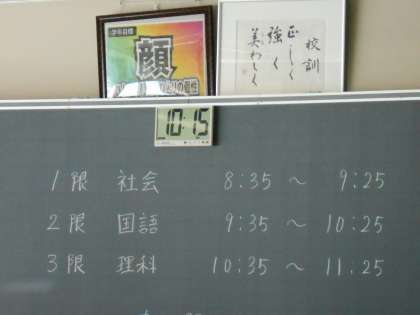 学年目標
顔
校訓
正しく
強く
美わしく
10:15
1限 社会 8:35 〜 9:25
2限 国語 9:35 〜 10:25
3限 理科 10:35 〜 11:25